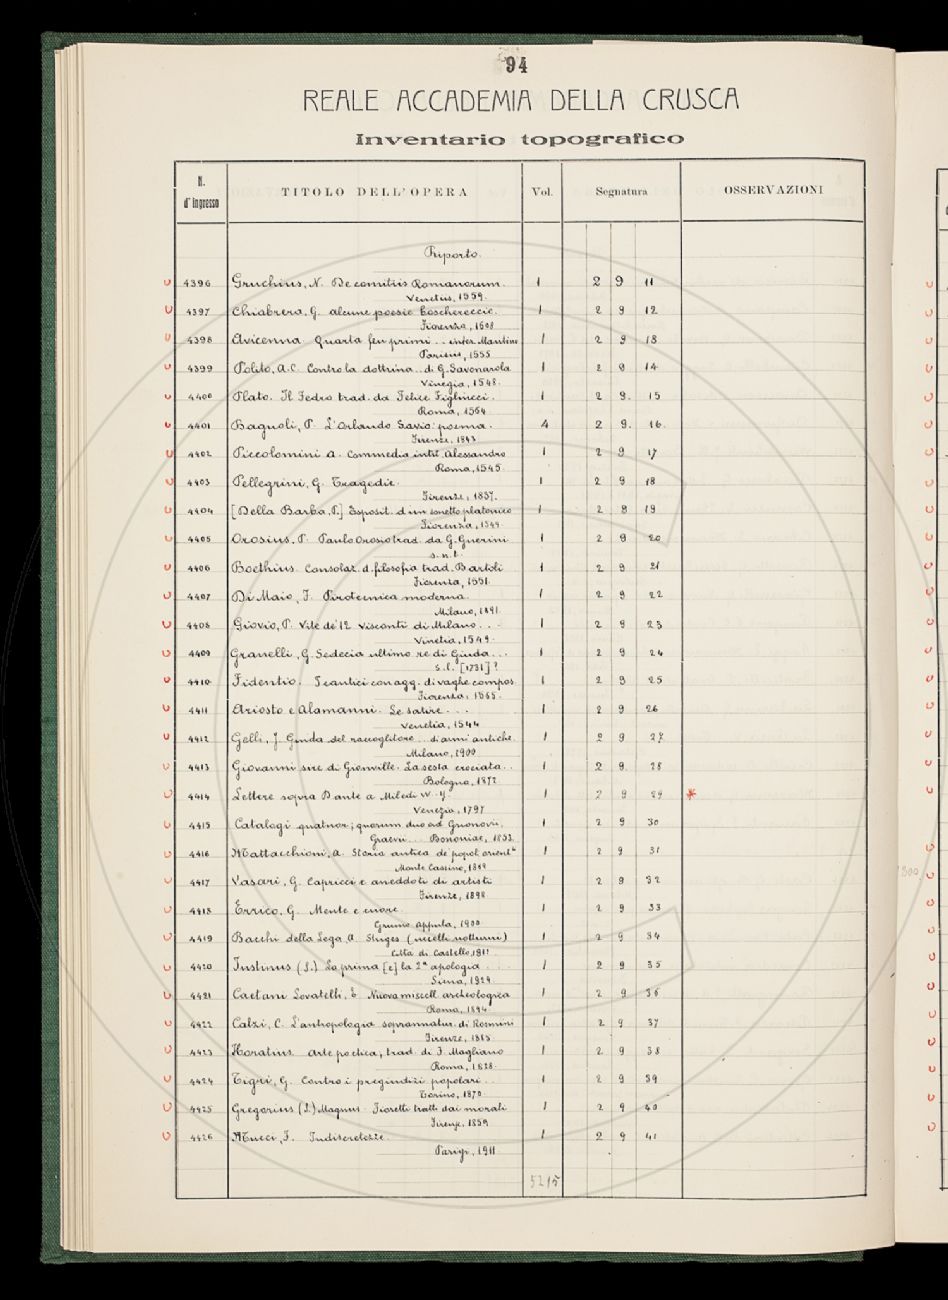 94
REALE ACCADEMIA DELLA CRUSCA
Inventario topografico
N. d'ingresso TITOLO DELL'OPERA Vol. Segnatura OSSERVAZIONI
Riporto.
4396 Gruchius, N. De comitiis Romanorum. 1 2 9 11
Venetiis, 1559.
4397 Chiabrera, G. alcune poesie boschereccie. 1 2 9 12
Fiorenza, 1608
4398 Avicenna Quarta fen primi .. inter. Mantino 1 2 9 13
Parisiis, 1555
4399 Polito, A.C. Contro la dottrina .. di G. Savonarola 1 2 9 14
Vinegia, 1548.
4400 Plato. Il Fedro trad. da Felice Figliucci. 1 2 9. 15
Roma, 1564
4401 Bagnoli, P. L'Orlando Savio: poema. 4 2 9. 16.
Firenze, 1843
4402 Piccolomini A. Commedia intit. Alessandro 1 2 9 17
Roma, 1545.
4403 Pellegrini, G. Tragedie. 1 2 9 18
Firenze, 1837.
4404 [Della Barba, P.] Esposit. d'un sonetto platonico 1 2 9 19
Fiorenza, 1549
4405 Orosius, P. Paulo Orosio trad. da G. Guerini 1 2 9 20
s.n.t.
4406 Boethius. Consolaz. d. filosofia trad. Bartoli 1 2 9 21
Fiorenza, 1551.
4407 Di Maio, F. Pirotecnica moderna. 1 2 9 22
Milano, 1891.
4408 Giovio, P. Vite de' 12 Visconti di Milano ... 1 2 9 23
Vinetia, 1549.
4409 Granelli, G. Sedecia ultimo re di Giuda ... 1 2 9 24
s.l. [1731]?
4410 Fidentio. I cantici con agg. di vaghe compos. 1 2 9 25
Fiorenza, 1565.
4411 Ariosto e Alamanni. Le satire ... 1 2 9 26
Venetia, 1544
4412 Gelli, J. Guida del raccoglitore .. d'armi antiche. 1 2 9 27
Milano, 1900
4413 Giovanni sire di Gionville. La sesta crociata .. 1 2 9. 28
Bologna, 1872
4414 Lettere sopra Dante a Miledi W-y. 1 2 9 29 *
Venezia, 1797
4415 Catalogi quatuor; quorum duo ad Gronovii, 1 2 9 30
Graevii ... Bononiae, 1853.
4416 Mattacchioni, A. Storia antica de' popol. orient.li 1 2 9 31
Monte Cassino,
4417 Vasari, G. Capricci e aneddoti di artisti 1 2 9 32
Firenze, 1898.
4418 Errico, G. Mente e cuore. 1 2 9 33
Grumo Appula, 1900
4419 Bacchi della Lega, A. Striges (uccelli notturni) 1 2 9 34
Città di Castello, 1911
4420 Iustinus (S.) La prima [e] la 2ª apologia ... 1 2 9 35
Siena, 1929.
4421 Caetani Lovatelli, E. Nuova miscell. archeologica 1 2 9 36
Roma, 1894
4422 Calzi, C. L'antropologia soprannatur. di Rosmini 1 2 9 37
Firenze, 1885
4423 Horatius. Arte poetica, trad. di F. Magliano 1 2 9 38
Roma, 1828.
4424 Tigri, G. Contro i pregiudizi popolari .. 1 2 9 39
Torino, 1870
4425 Gregorius (S.) Magnus. Fioretti tratti dai morali 1 2 9 40
Firenze, 1859
4426 Mucci, F. Indiscretezze. 1 2 9 41
Parigi, 1911
5215